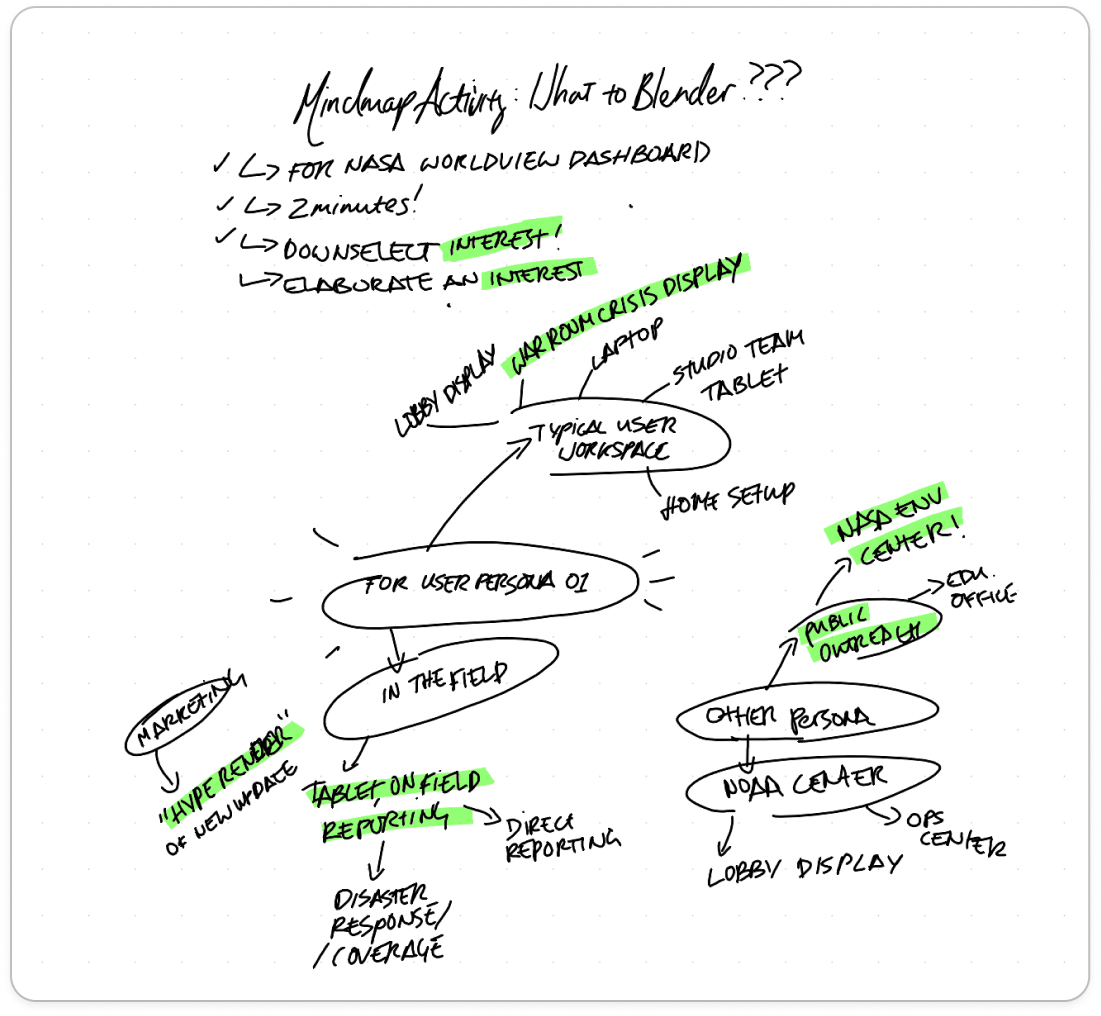 Mindmap Activity: What to Blender???
✓ ↳ FOR NASA WORLDVIEW DASHBOARD
✓ ↳ 2 minutes!
✓ ↳ DOWNSELECT INTEREST!
↳ ELABORATE AN INTEREST
LOBBY DISPLAY
WAR ROOM CRISIS DISPLAY
LAPTOP
STUDIO TEAM
TABLET
TYPICAL USER
WORKSPACE
HOME SETUP
FOR USER PERSONA 01
IN THE FIELD
TABLET ON FIELD
REPORTING
DIRECT
REPORTING
DISASTER
RESPONSE/
/COVERAGE
MARKETING
"HYPE RENDER"
OF NEW UPDATE
NASA ENV
CENTER!
EDU.
OFFICE
PUBLIC
OUTREACH
OTHER PERSONA
NOAA CENTER
OPS
CENTER
LOBBY DISPLAY